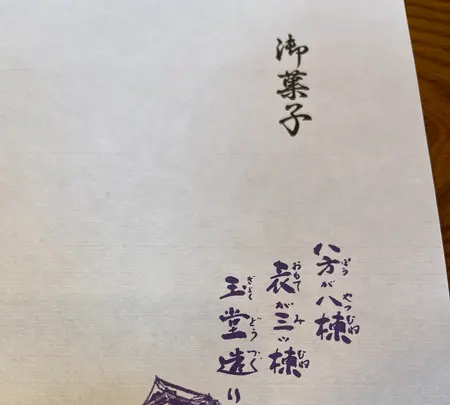 御菓子
八方が八棟
表が三ツ棟
玉堂造り